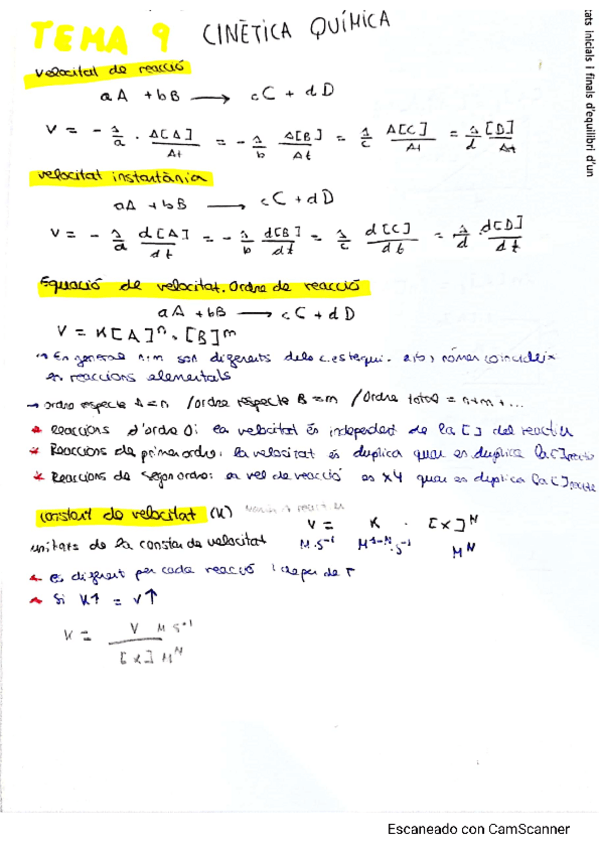 TEMA 9 CINÈTICA QUÍMICA
tats inicials i finals d'equilibri d'un
velocitat de reacció
aA + bB ⟶ cC + dD
V = - 1/a · Δ[A]/Δt = - 1/b Δ[B]/Δt = 1/c Δ[C]/Δt = 1/d Δ[D]/Δt
velocitat instantània
aA + bB ⟶ cC + dD
V = - 1/a d[A]/dt = - 1/b d[B]/dt = 1/c d[C]/dt = 1/d · d[D]/dt
Equació de velocitat. Ordre de reacció
aA + bB ⟶ cC + dD
V = K[A]ⁿ · [B]ᵐ
En general n,m són diferents dels c.estequi. a,b, només coincideix
en reaccions elementals
→ ordre respecte A = n / ordre respecte B = m / Ordre total = n+m+...
* Reaccions d'ordre 0: la velocitat és independent de la [ ] del reactiu
* Reaccions de primer ordre: la velocitat es duplica quan es duplica la [ ]
* Reaccions de segon ordre: la vel de reacció es x4 quan es duplica la [ ]
constant de velocitat (K)
V = K · [X]ᴺ
unitats de la constant de velocitat M·s⁻¹ M¹⁻ᴺ·s⁻¹ Mᴺ
es diferent per cada reacció i depen de T
Si K↑ = V↑
K = V M s⁻¹ / [X] Mᴺ
Escaneado con CamScanner